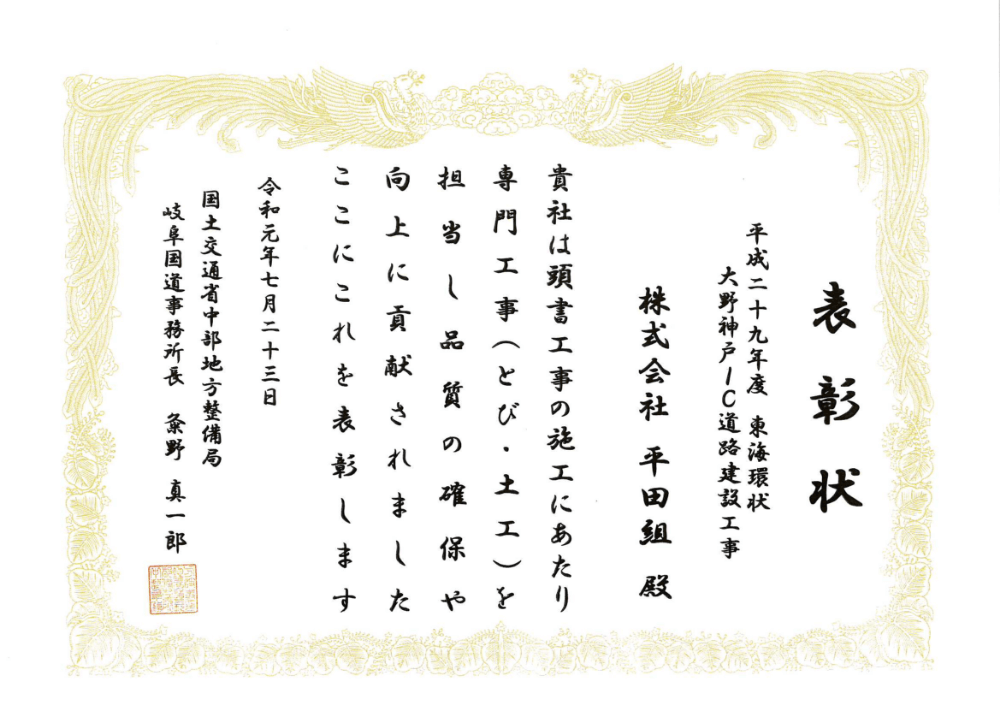 表彰状
平成二十九年度 東海環状
大野神戸IC道路建設工事
株式会社 平田組 殿
貴社は頭書工事の施工にあたり
専門工事(とび・土工)を
担当し品質の確保や
向上に貢献されました
ここにこれを表彰します
令和元年七月二十三日
国土交通省中部地方整備局
岐阜国道事務所長 粂野 真一郎